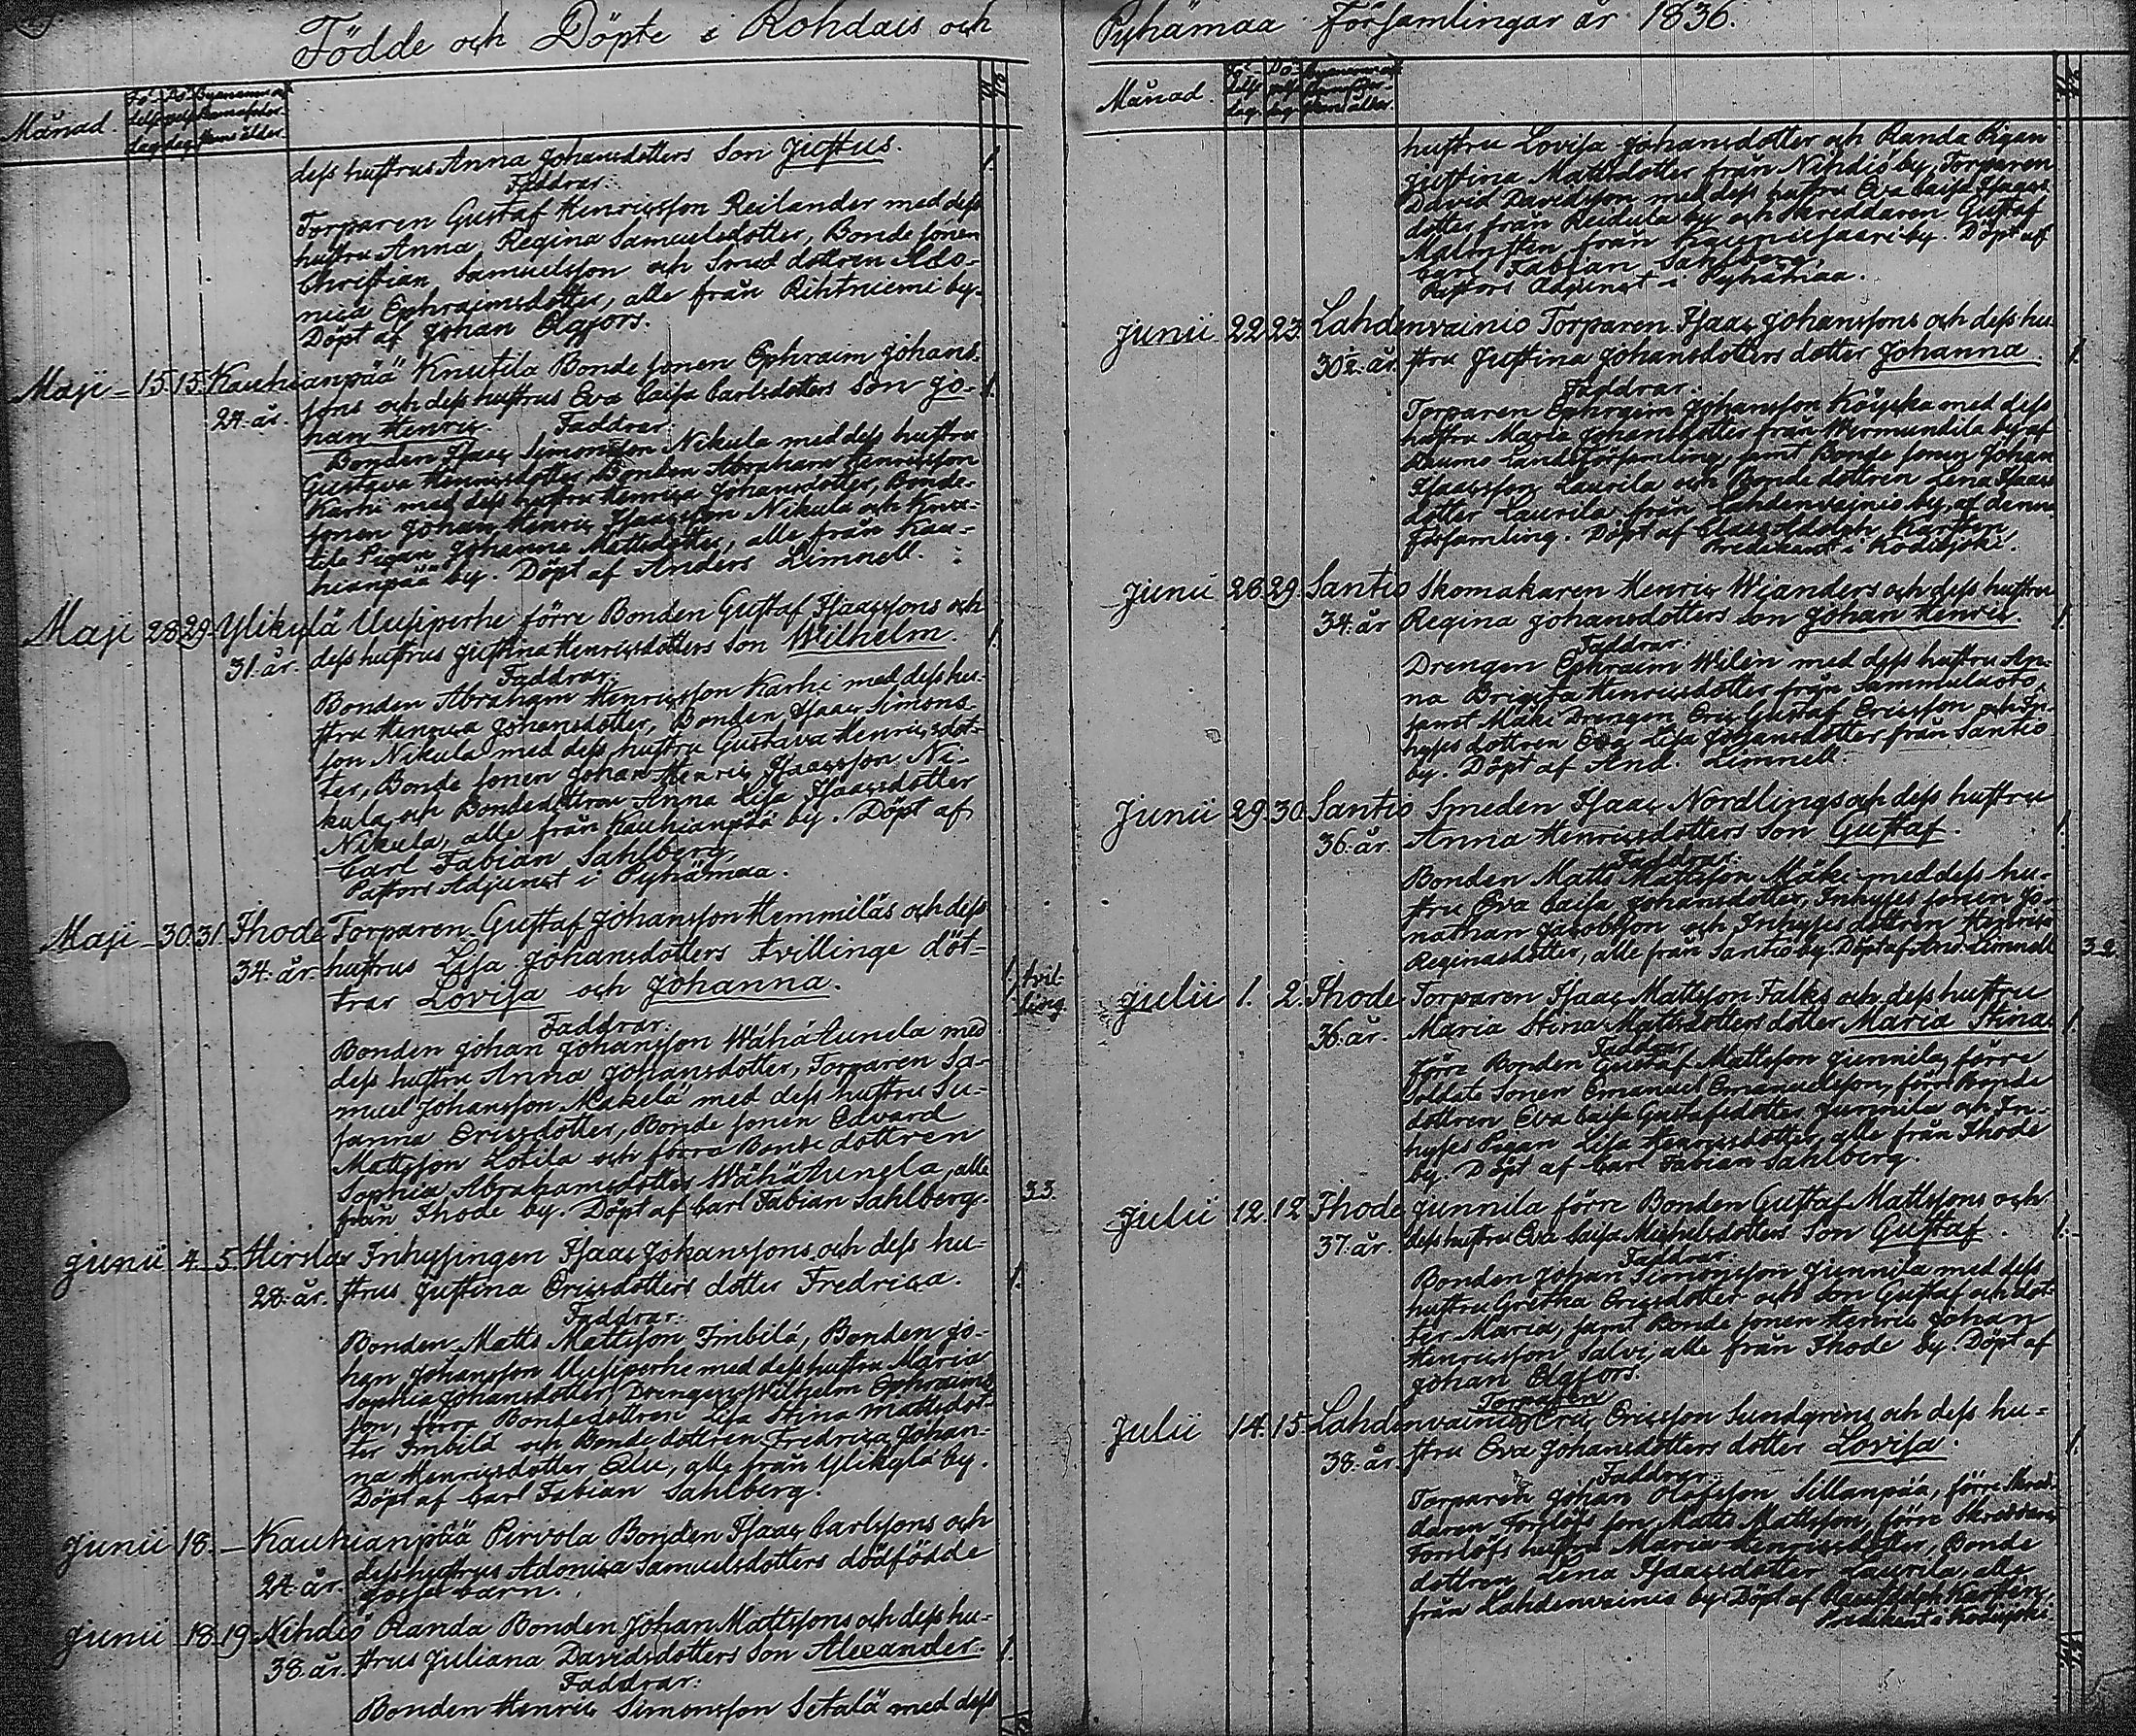 Födde och Döpte i Rohdais och
Månad.
dess hustrus Anna Johansdotters Son Justus. 1.
Faddrar:
Torparen Gustaf Henricsson Reilander med dess
hustru Anna Regina Samuelsdotter, Bonde sonen
Christian Samuelsson och Smed dottren Ado-
nica Ephraimsdotter, alle från Rihtniemi by.
Döpt af Johan Elgfors.
Maji 15. 15. Kauhianpää Knutila Bonde sonen Ephraim Johans-
24. år. sons och dess hustrus Eva Caisa Carlsdotters Son Jo- 1.
han Henric. Faddrar:
Bonden Isaac Simonsson Nikula med dess hustru
Gustava Henricsdotter, Bonden Abraham Henricsson
Karhi med dess hustru Henrica Johansdotter, Bonde-
sonen Johan Henric Isaacsson Nikula och Knu-
tila Pigan Johanna Mattsdotter, alle från Kau-
hianpää by. Döpt af Anders Limnell.
Maji 28. 29. Ylikylä Uusiperhe förre Bonden Gustaf Isaacssons och
31. år. dess hustrus Justina Henricsdotters Son Wilhelm. 1.
Faddrar:
Bonden Abraham Henricsson Karhi med dess hu-
stru Henrica Johansdotter, Bonden Isaac Simons-
son Nikula med dess hustru Gustava Henricsdot-
ter, Bonde sonen Johan Henric Isaacsson Ni-
kula och Bondedottren Anna Lisa Isaacsdotter
Nikula, alle från Kauhianpää by. Döpt af
Carl Fabian Sahlberg,
Pastors Adjunct i Pyhämaa.
Maji 30. 31. Ihode Torparen Gustaf Johansson Hemmiläs och dess
34. år. hustrus Lisa Johansdotters tvillinge döt- 1. tvil-
trar Lovisa och Johanna. 1. ling
Faddrar:
Bonden Johan Johansson Wähätunela med
dess hustru Anna Johansdotter, Torparen Sa-
muel Johansson Makelä med dess hustru Su-
sanna Ericsdotter, Bonde sonen Edvard
Mattsson Lotila och förra Bonde dottren
Sophia Abrahamsdotter Wähätunela, alle
från Ihode by. Döpt af Carl Fabian Sahlberg. 33.
Junii 4. 5. Hirslax Inhysingen Isaac Johanssons och dess hu-
28. år. strus Justina Ericsdotters dotter Fredrica. 1.
Faddrar:
Bonden Matts Mattsson Imbilä, Bonden Jo-
han Johansson Uusiperhe med dess hustru Maria
Sophia Johansdotter, Drengen Wilhelm Ephraims-
son, förra Bondedottren Lisa Stina Mattsdot-
ter Imbilä och Bonde dottren Fredrica Johan-
na Henricsdotter, alle från Ylikylä by.
Döpt af Carl Fabian Sahlberg.
Junii 18. – Kauhianpää Pirvola Bonden Isaac Carlssons och
24. år. dess hustrus Adonica Samuelsdotters dödfödde
gosse barn.
Junii 18. 19. Nihdiö Randa Bonden Johan Mattssons och dess hu-
38. år. strus Juliana Davidsdotters Son Alexander. 1.
Faddrar:
Bonden Henric Simonsson Setalä med dess
Pyhämaa Församlingar år 1836.
Månad.
hustru Lovisa Johansdotter och Randa Pigan
Justina Mattsdotter från Nihdiö by, Torparen
David Davidsson med dess hustru Eva Caisa Isaacs-
dotter från Reidula by och Skreddaren Gustaf
Malmsten från Kaunissaari by. Döpt af
Carl Fabian Sahlberg,
Pastors Adjunct i Pyhämaa.
Junii 22. 23. Lahdenvainio Torparen Isaac Johanssons och dess hu-
30½ år. stru Justina Johansdotters dotter Johanna. 1.
Faddrar:
Torparen Ephraim Johansson Köykä med dess
hustru Maria Johansdotter från Wermundila by af
Raumo Lands församling, samt Bonde sonen Johan
Isaacsson Laurila och Bonde dottren Lena Isaacs-
dotter Laurila från Lahdenvainio by, af denna
församling. Döpt af Claes Adolph Karsten,
Predikant i Kodisjoki.
Junii 26. 29. Santio Skomakaren Henric Wianders och dess hustru
34. år Regina Johansdotters Son Johan Henric. 1.
Faddrar:
Drengen Ephraim Wilén med dess hustru An-
na Brigitta Henricsdotter från Sammulasto,
samt Mäki Drengen Eric Gustaf Ericsson och In-
hyses dottren Eva Lisa Johansdotter från Santio
by. Döpt af And. Limnell.
Junii 29. 30. Santio Smeden Isaac Nordlings och dess hustru
36. år. Anna Henricsdotters Son Gustaf. 1.
Faddrar:
Bonden Matts Mattsson Mäki med dess hu-
stru Eva Caisa Johansdotter, Inhyses sonen Jo-
nathan Jacobsson och Inhyses dottren Henrica
Reginasdotter, alle från Santio by. Döpt af And. Limnell 32
Julii 1. 2. Ihode Torparen Isaac Mattsson Falks och dess hustru
36. år. Maria Stina Mattsdotters dotter Maria Stina. 1.
Faddrar:
Förre Bonden Gustaf Mattsson Junnila, förre
Soldats Sonen Emanuel Emanuelsson, förre Bonde
dottren Eva Caisa Gustafsdotter Junnila och In-
hyses Pigan Lisa Henricsdotter, alle från Ihode
by. Döpt af Carl Fabian Sahlberg.
Julii 12. 12. Ihode Junnila förre Bonden Gustaf Mattssons och
37. år. dess hustru Eva Caisa Michelsdotters Son Gustaf. 1.
Faddrar:
Bonden Johan Simonsson Junnila med dess
hustru Gretha Ericsdotter och Son Gustaf och dot-
ter Maria, samt Bonde sonen Henric Johan
Henricsson Salvi, alle från Ihode by. Döpt af
Johan Elgfors.
Torparen
Julii 14. 15. Lahdenvainio Eric Ericsson Sundgrens och dess hu-
38. år. stru Eva Johansdotters dotter Lovisa. 1.
Faddrar:
Torparen Johan Olofsson Sillanpää, förre Skred-
daren Forslöfs son Matts Mattsson, förre Skreddare
Forslöfs hustru Maria Henricsdotter, Bonde
dottren Lena Isaacsdotter Laurila, alle
från Lahdenvainio by. Döpt af Claes Adolph Karsten,
Predikant i Kodisjoki